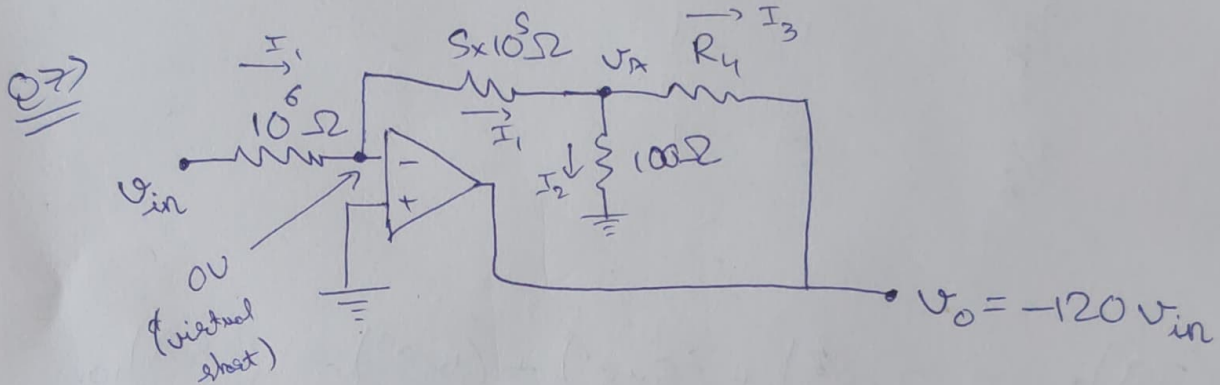 Q7>
I₁ →
10⁶ Ω
5x10⁵Ω
I₁ →
V_A
R₄
→ I₃
I₂ ↓
100Ω
v_in
-
+
0V
(virtual
short)
v_o = -120 v_in